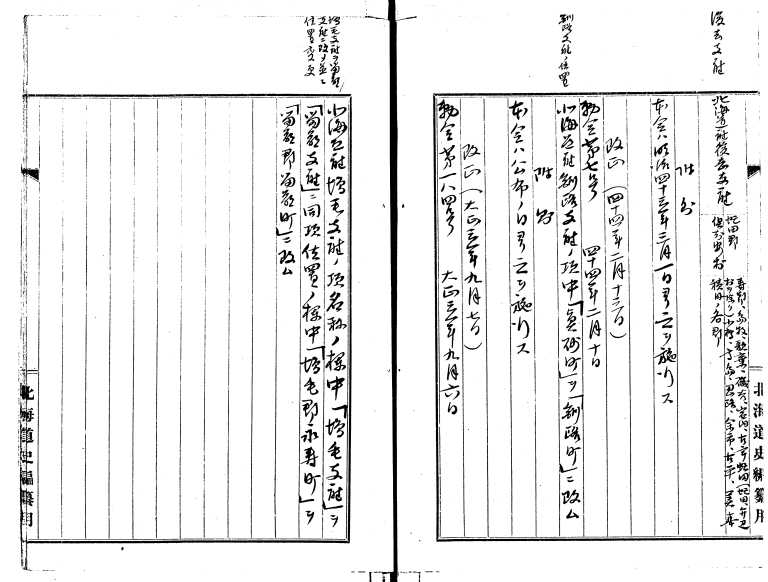 後志支庁
北海道庁後志支庁
虻田郡
倶知安村
附則
本令ハ明治四十三年三月一日ヨリ之ヲ施行ス
改正(四十四年二月十三日)
勅令第七号 四十四年二月十日
釧路支庁位置
北海道庁釧路支庁ノ項中「真砂町」ヲ「釧路町」ニ改ム
附則
本令ハ公布ノ日ヨリ之ヲ施行ス
改正(大正三年九月七日)
勅令第一八四号 大正三年九月六日
北海道史編纂用
増毛支庁ヲ留萌
支庁ニ改メ並ニ
位置変更
北海道庁増毛支庁ノ項名称ノ欄中「増毛支庁」ヲ
「留萌支庁」ニ同項位置ノ欄中「増毛郡永寿町」ヲ
「留萌郡留萌町」ニ改ム
北海道史編纂用